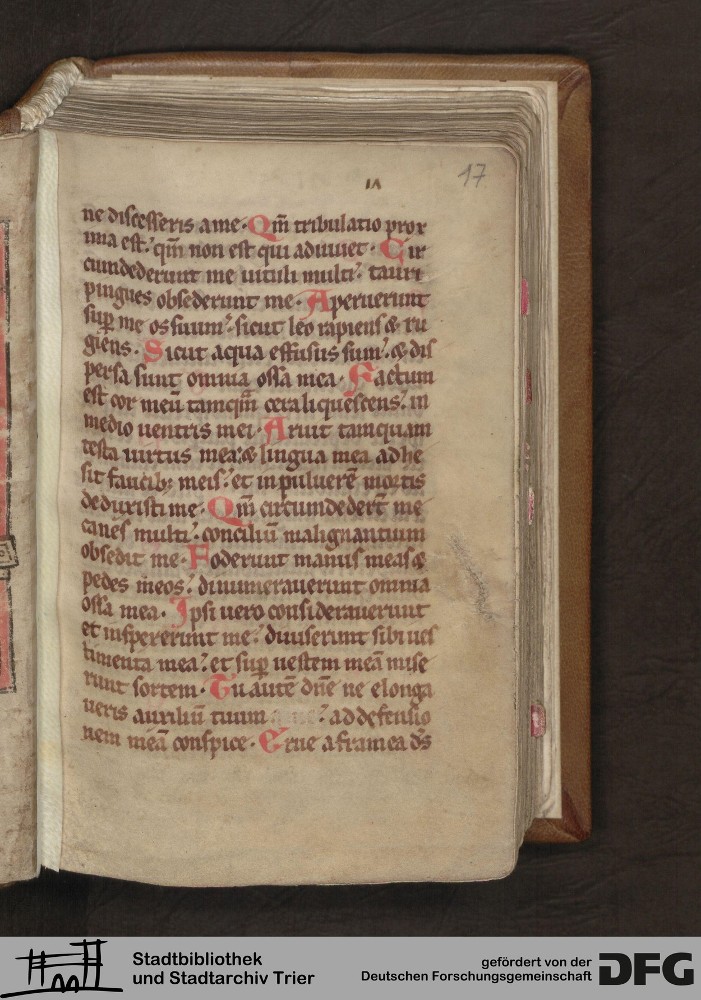 17
ıʌ
ne discesseris a me. Qm̄ tribulatio prox
ima est: qm̄ non est qui adiuvet. Cir
cumdederunt me vituli multi: tauri
pingues obsederunt me. Aperuerunt
sup̱ me os suum: sicut leo rapiens & ru
giens. Sicut aqua effusus sum: & dis
persa sunt omnia ossa mea. Factum
est cor meū tamqm̄ cera liquescens: in
medio uentris mei. Aruit tamquam
testa uirtus mea: & lingua mea adhe
sit faucib; meis: et in puluerē mortis
deduxisti me. Qm̄ circumdedert̄ me
canes multi: conciliū malignantium
obsedit me. Foderunt manus meas &
pedes meos: dinumerauerunt omnia
ossa mea. Ipsi uero considerauerunt
et inspexerunt me: diuiserunt sibi ues
timenta mea: et sup̱ uestem meā mise
runt sortem. Tu autē dn̄e ne elonga
ueris auxiliū tuum a me: ad defensio
nem meā conspice. Erue a framea ds̄
Stadtbibliothek
und Stadtarchiv Trier
gefördert von der
Deutschen Forschungsgemeinschaft
DFG